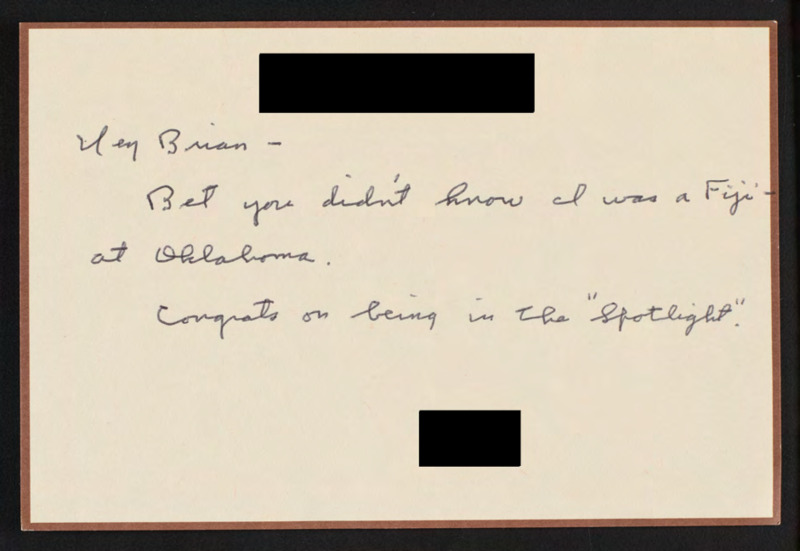 Hey Brian -
Bet you didn't know I was a Fiji -
at Oklahoma.
Congrats on being in the "Spotlight".